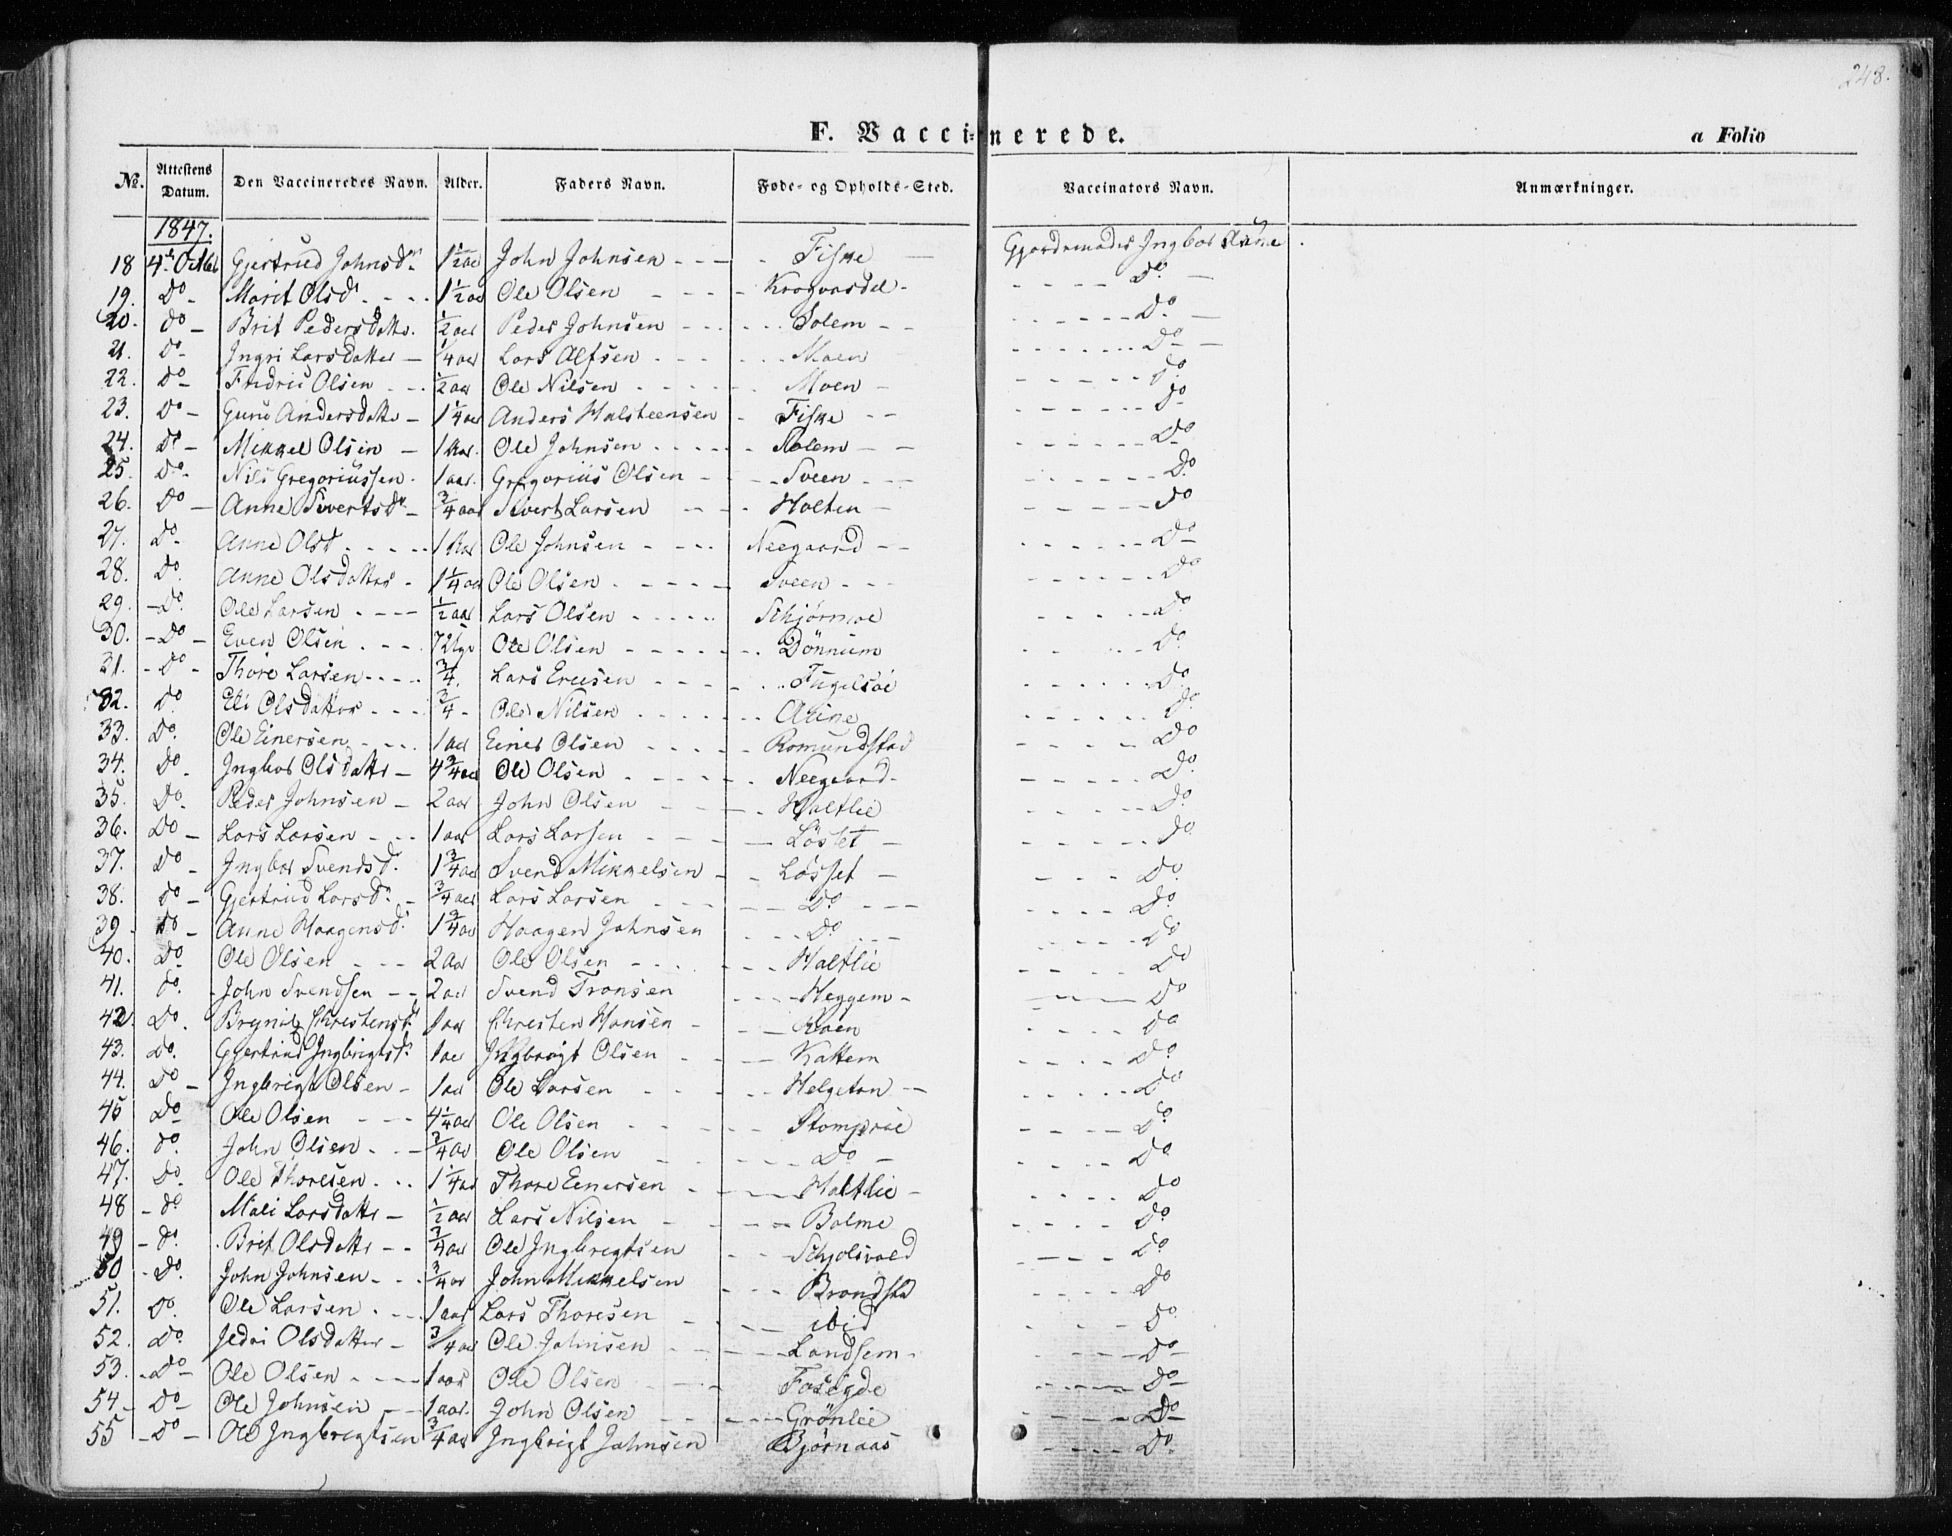 248.
F. Vaccinerede.
a Folio
No. Attestens Datum. Den Vaccineredes Navn. Alder. Faders Navn. Føde- og Opholds-Sted. Vaccinators Navn. Anmærkninger.
1847.
18 4de Octbr Gjertrud Johnsdr 1 1/2 aar John Johnsen - - - Fiske Gjordemoder Ingbor Aune
19. Do - Marit Olsdr - - 1 1/2 aar Ole Olsen - - - - Krogvasdel - - - - Do -
20. do - Brit Pedersdatter. 1/2 aar Peder Johnsen - - - Solem - - - - - Do -
21. Do - Ingri Larsdatter - 1/4 aar Lars Alfsen - - - Moen - - - - Do -
22. Do - Fredric Olsen - - 1/2 aar Ole Nilsen - - - Moen - - - - Do
23. Do - Guru Andersdatter - 1 1/4 aar Anders Halsteensen - Fiske - - - - - Do
24. Do - Mikkel Olsen - 1 Aar. Ole Johnsen - - - Solem - - - - - Do
25. Do - Nils Gregoriussen. 1 aar. Gregorius Olsen - - Sveen - - - - - Do
26. Do - Anne Sivertsdr - 3/4 aar Sivert Larsen - - - Holten - - - - Do
27. Do. Anne Olsd - - - 1 Aar Ole Johnsen - - - Neegaard - - - - - Do
28. Do. Anne Olsdatter - 1 1/4 aar Ole Olsen - - - Sveen - - - - - Do
29. - Do. Ole Larsen - - - 1/2 aar Lars Olsen - - - Schjørmoe - - - Do
30. - Do - Even Olsen - - - Ole Olsen - - - Dønnum - - - Do
31. - Do - Thore Larsen - - - 3/4. Lars Ericsen - - - Fugelsøi - - - Do
32. Do. Eli Olsdatter - - - 3/4 - Ole Nilsen - - - Aune - - - Do
33. Do. Ole Einersen - - - 1 aar Einer Olsen - - - Romundstad - - - Do
34. Do Ingbor Olsdatter - 4 3/4 aar Ole Olsen - - - Neegaard - - - - Do
35. Do. Peder Johnsen - 2 aar John Olsen - - - Haltlie - - - Do
36. Do - Lars Larsen - - - 1 aar Lars Larsen - - - Løset - - - - Do
37. Do - Ingbor Svendsdr. 1 3/4 aar Svend Mikkelsen - - Løsset - - - - Do.
38. do - Gjertrud Larsdr. - 3/4 aar Lars Larsen - - - Do - - - - - Do
39 - Do - Anne Haagensdr 1 3/4 aar Haagen Johnsen - - - Do - - - - - Do
40. Do Ole Olsen - - - 2 Aar Ole Olsen - - - Haltlie - - - Do
41. do. John Svendsen - - 2 aar Svend Tronsen - - - Heggem - - - - Do
42. Do. Brynil Christensd. 1 aar Christen Hansen - - - Roen - - - Do
43. Do. Gjertrud Ingbrigtsdr 1 aar Ingbrigt Olsen - - - Kattem - - - Do
44. Do - Ingbrigt Olsen - 1 aar Ole Larsen - - - Helgeton - - - - - Do
45 Do Ole Olsen - - - 4 1/4 aar Ole Olsen - - - - - - Do
46. do. John Olsen - - - 3/4 aar Ole Olsen - - - Do - - - - Do
47. Do. Ole Thoresen - - - 1 1/4 aar Thore Einersen - - - Haltlie - - - - Do
48 - do. Mali Larsdatter - 1/2 aar Lars Nilsen - - - Bolme - - - Do
49 - do. Brit Olsdatter - - 3/4 aar Ole Ingbrigtsen - - - Schjølsvold - - - Do
50 - Do. John Johnsen - - - 3/4 aar John Mikkelsen - - - Brandstad - - - Do
51. Do. Ole Larsen - - - 1 aar Lars Thoresen - - - ibid - - - Do
52. Do. Jedri Olsdatter - 3/4 aar Ole Johnsen - - - Landsem - - - - Do
53. - Do - Ole Olsen - - - 1 aar Ole Olsen - - - Fosegde - - - Do
54 - Do - Ole Johnsen - - 1 aar. John Olsen - - - Grønlie - - - Do
55 - Do - Ole Ingbregtsen 3/4 aar Ingbrigt Johnsen Bjørnaas - - - Do